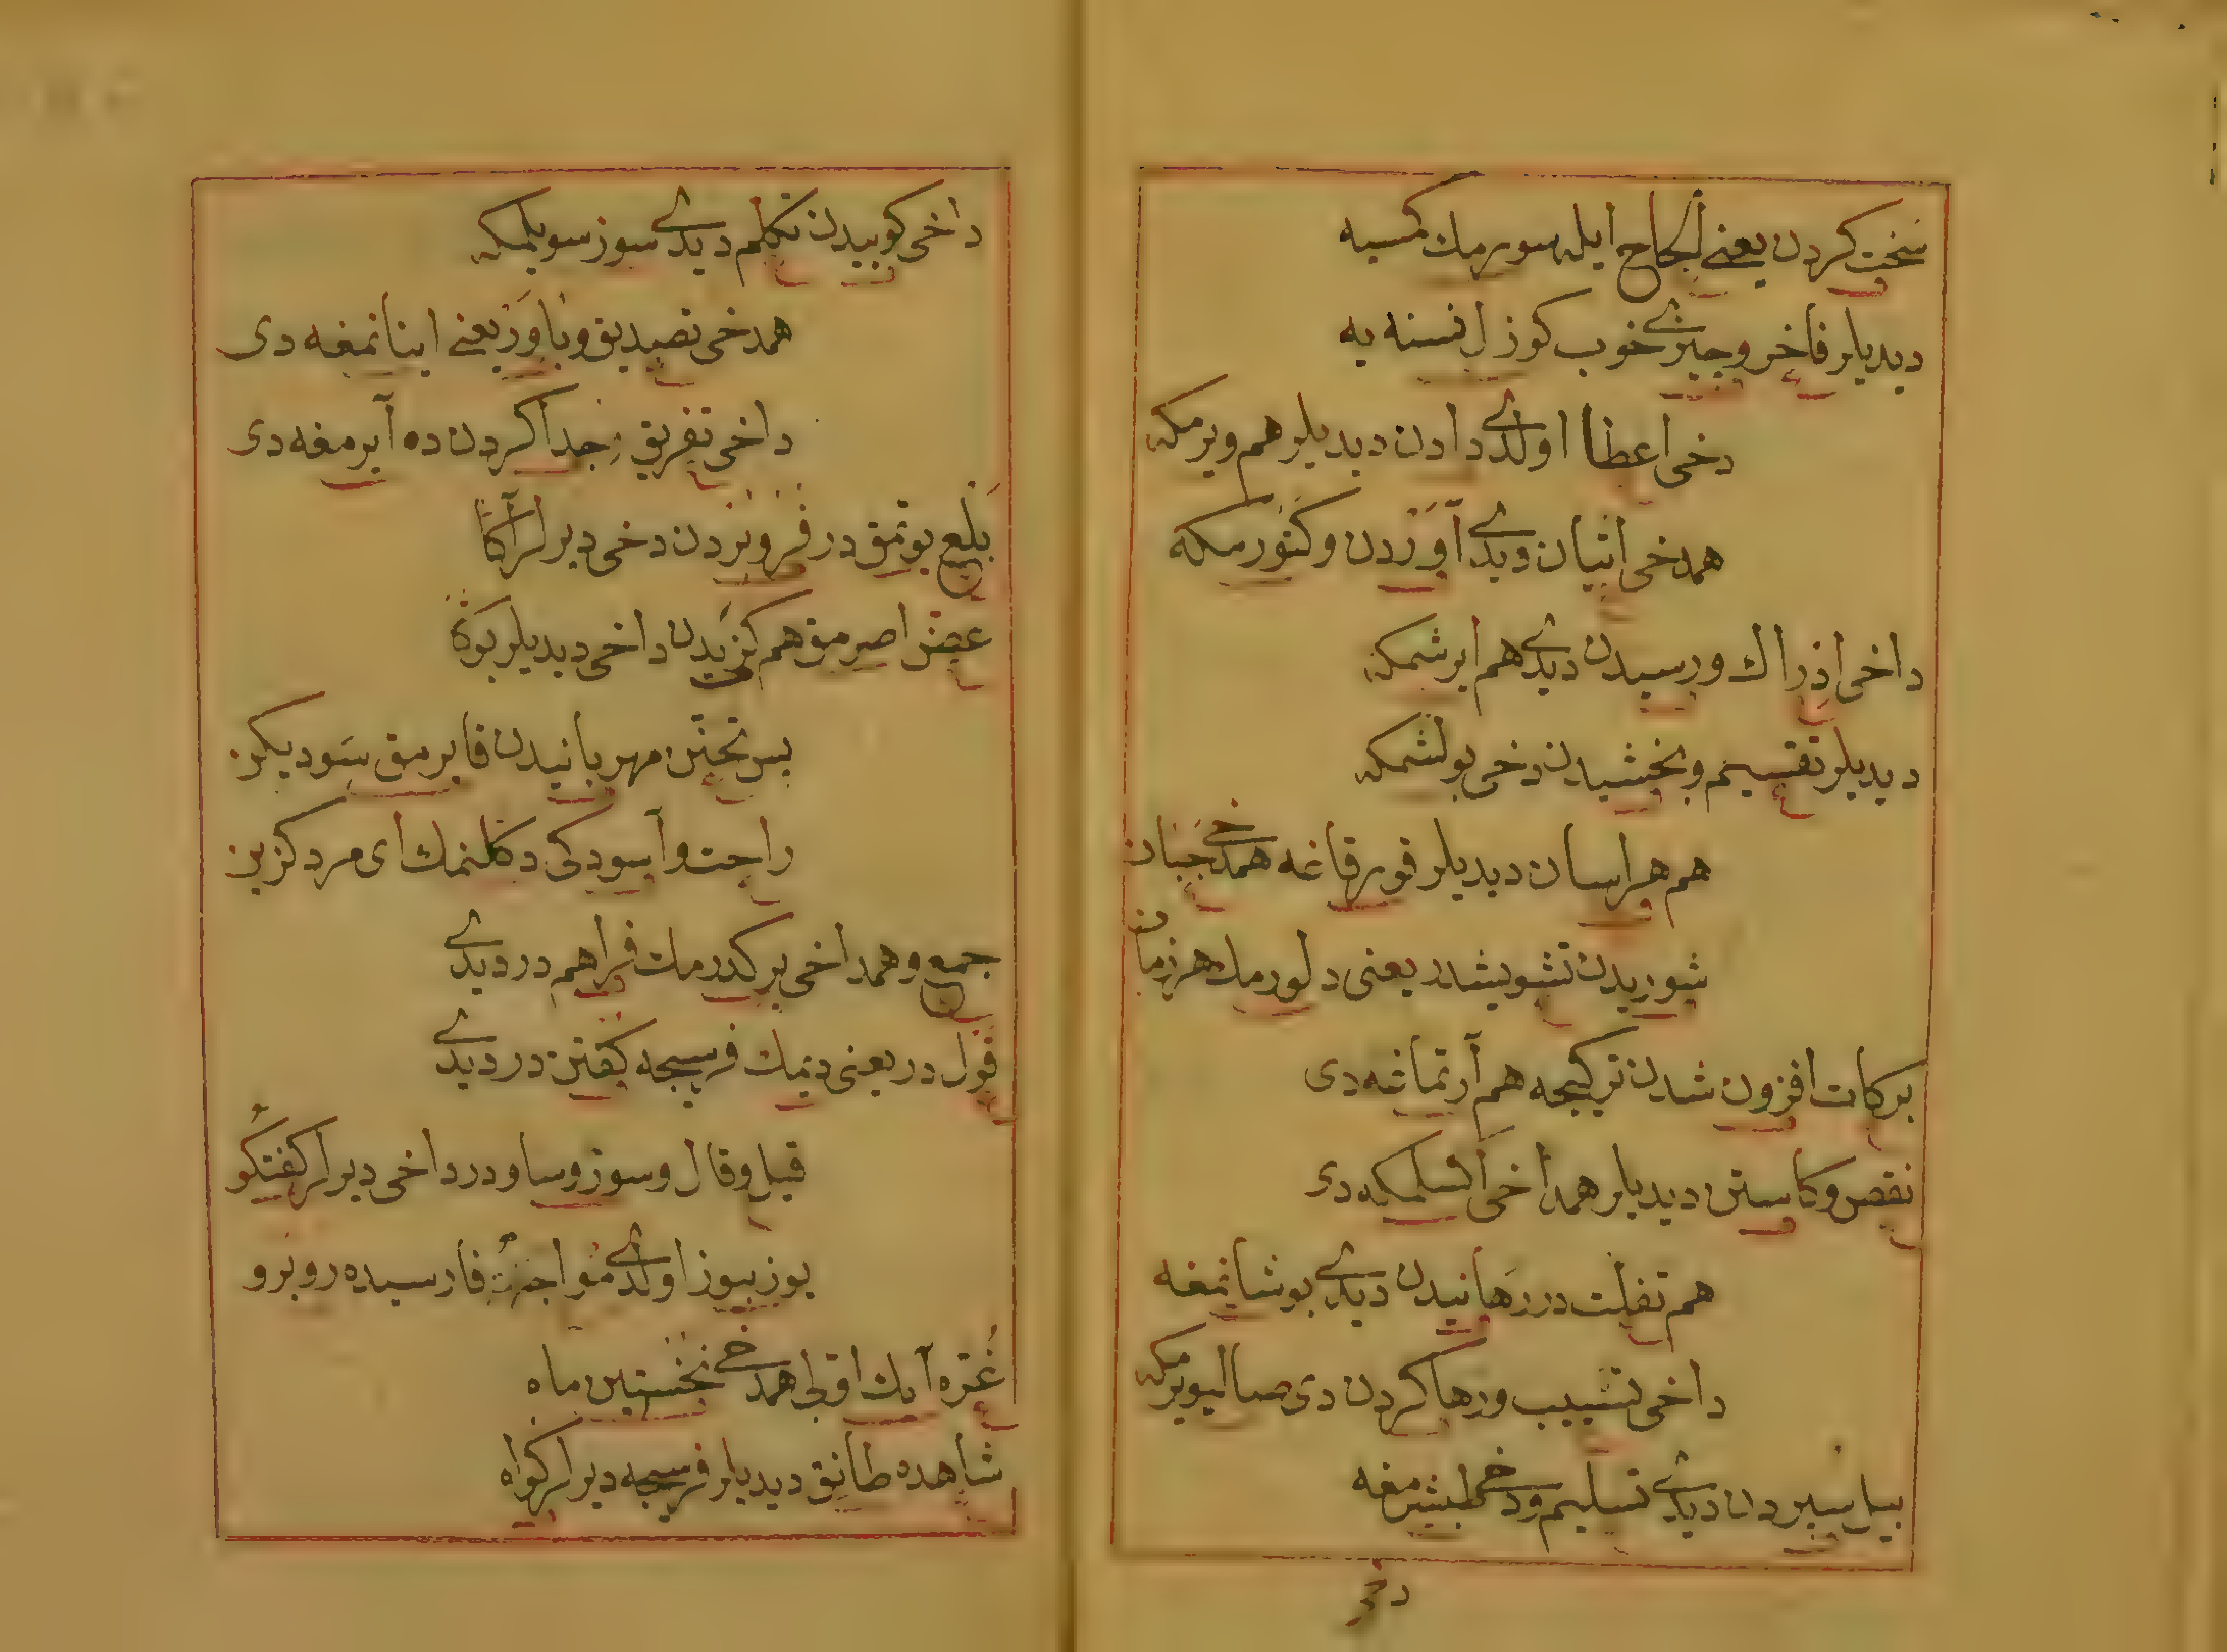 سخت کردن یعنی الحاح ایله سورمك کمسیه
دیدیلر فاخر و چیزی خوب کوزل نسنه یه
دخی اعطا اولدی دادن دیدیلر هم ویرمکه
همدخی اتیان دیدی آوردن و کتورمکه
داخی ادراك و رسیدن دیدی هم ایرشمکه
دیدیلر تقسیم و بخشیدن دخی بولشمکه
هم هراسان دیدیلر قورقاغه همدخی جبان
شوریدن تشویشدر یعنی دلورمك هر زمان
برکات افزون شدن ترکیجه هم آرتماغه دی
نقص و کاستن دیدیلر همداخی اکسلمکه دی
هم تفلت در رهانیدن دیدی بوشانمغه
داخی تسییب و رها کردن دی صالیویرمکه
بیل سپردن دیدی تسلیم و دخی طبشرمغه
دخی
داخی کوییدن تکلم دیدی سوز سویلمکه
همدخی تصدیق و باور یعنی اینانمغه دی
داخی تفریق جدا کردن ده آیرمغه دی
بلع یوتمق در فرو بردن دخی دیرلر آکا
عض اصرمق هم کزیدن داخی دیدیلر بوکا
راحت و آسودکی دکلنمك ای مرد کزین
جمع و همداخی برکدرمك فراهم در دیدی
قول در یعنی دیمك فرسیجه کفتن در دیدی
قیل و قال و سوز و ساو در داخی دیرلر کفتکو
یوز بیوز اولدی مواجهه فارسیده روبرو
غره آیك اولی همدخی نخستین ماه
شاهده طانق دیدیلر فرسیجه دیرلر کواه